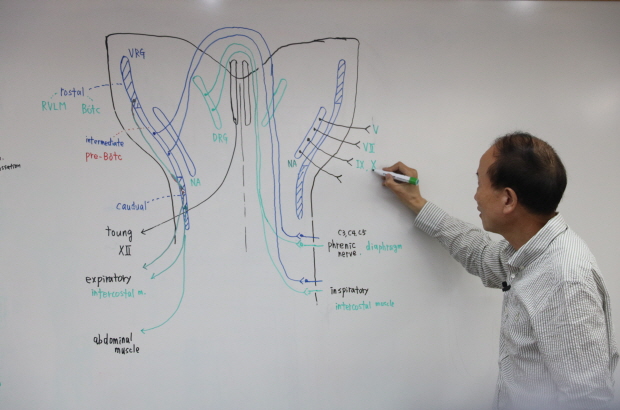 VRG
rostal
RVLM Bötc
intermediate
pre-Bötc
NA
caudual
toung
XII
expiratory
intercostal m.
abdominal
muscle
DRG
NA
V
VII
IX X
C3, C4, C5
phrenic diaphragm
nerve.
inspiratory
intercostal muscle